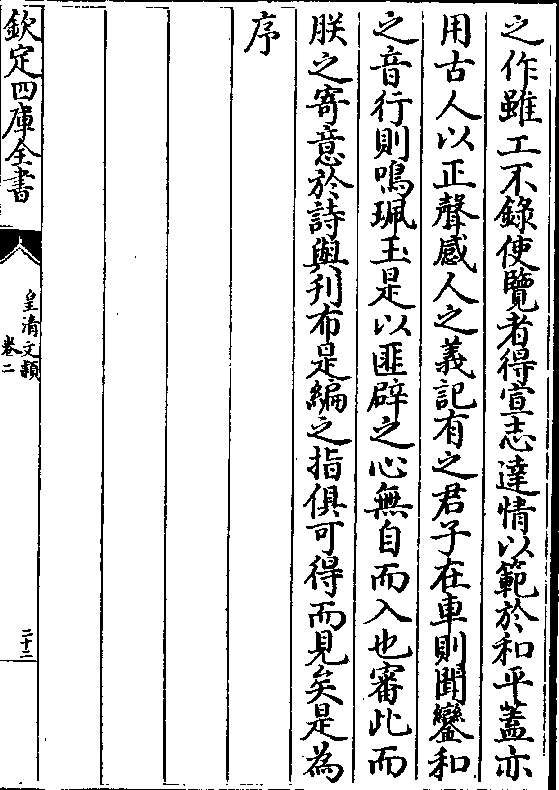 之作雖工不錄使覽者得宣志達情以範於和平蓋亦
用古人以正聲感人之義記有之君子在車則聞鸞和
之音行則鳴珮玉是以匪辟之心無自而入也審此而
朕之寄意於詩與刋布是編之指俱可得而見矣是為
序
欽定四庫全書
皇清文穎
卷二
二十二